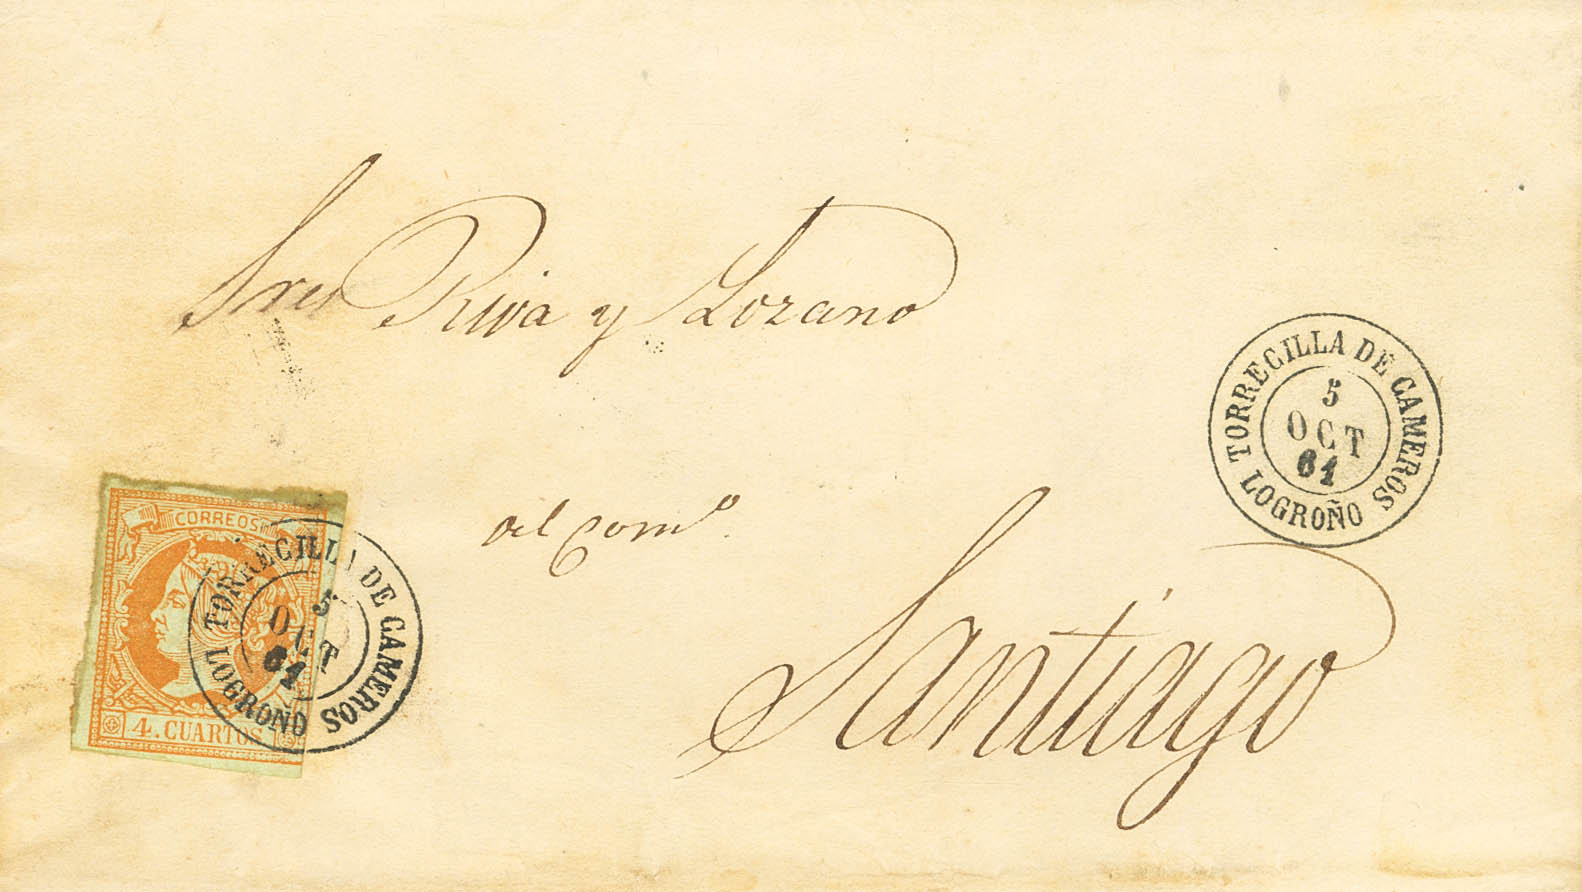 Sres Riva y Lozano
TORRECILLA DE CAMEROS
5
OCT
61
LOGROÑO
del Comº.
Santiago
CORREOS
4. CUARTOS
TORRECILLA DE CAMEROS
5
OCT
61
LOGROÑO